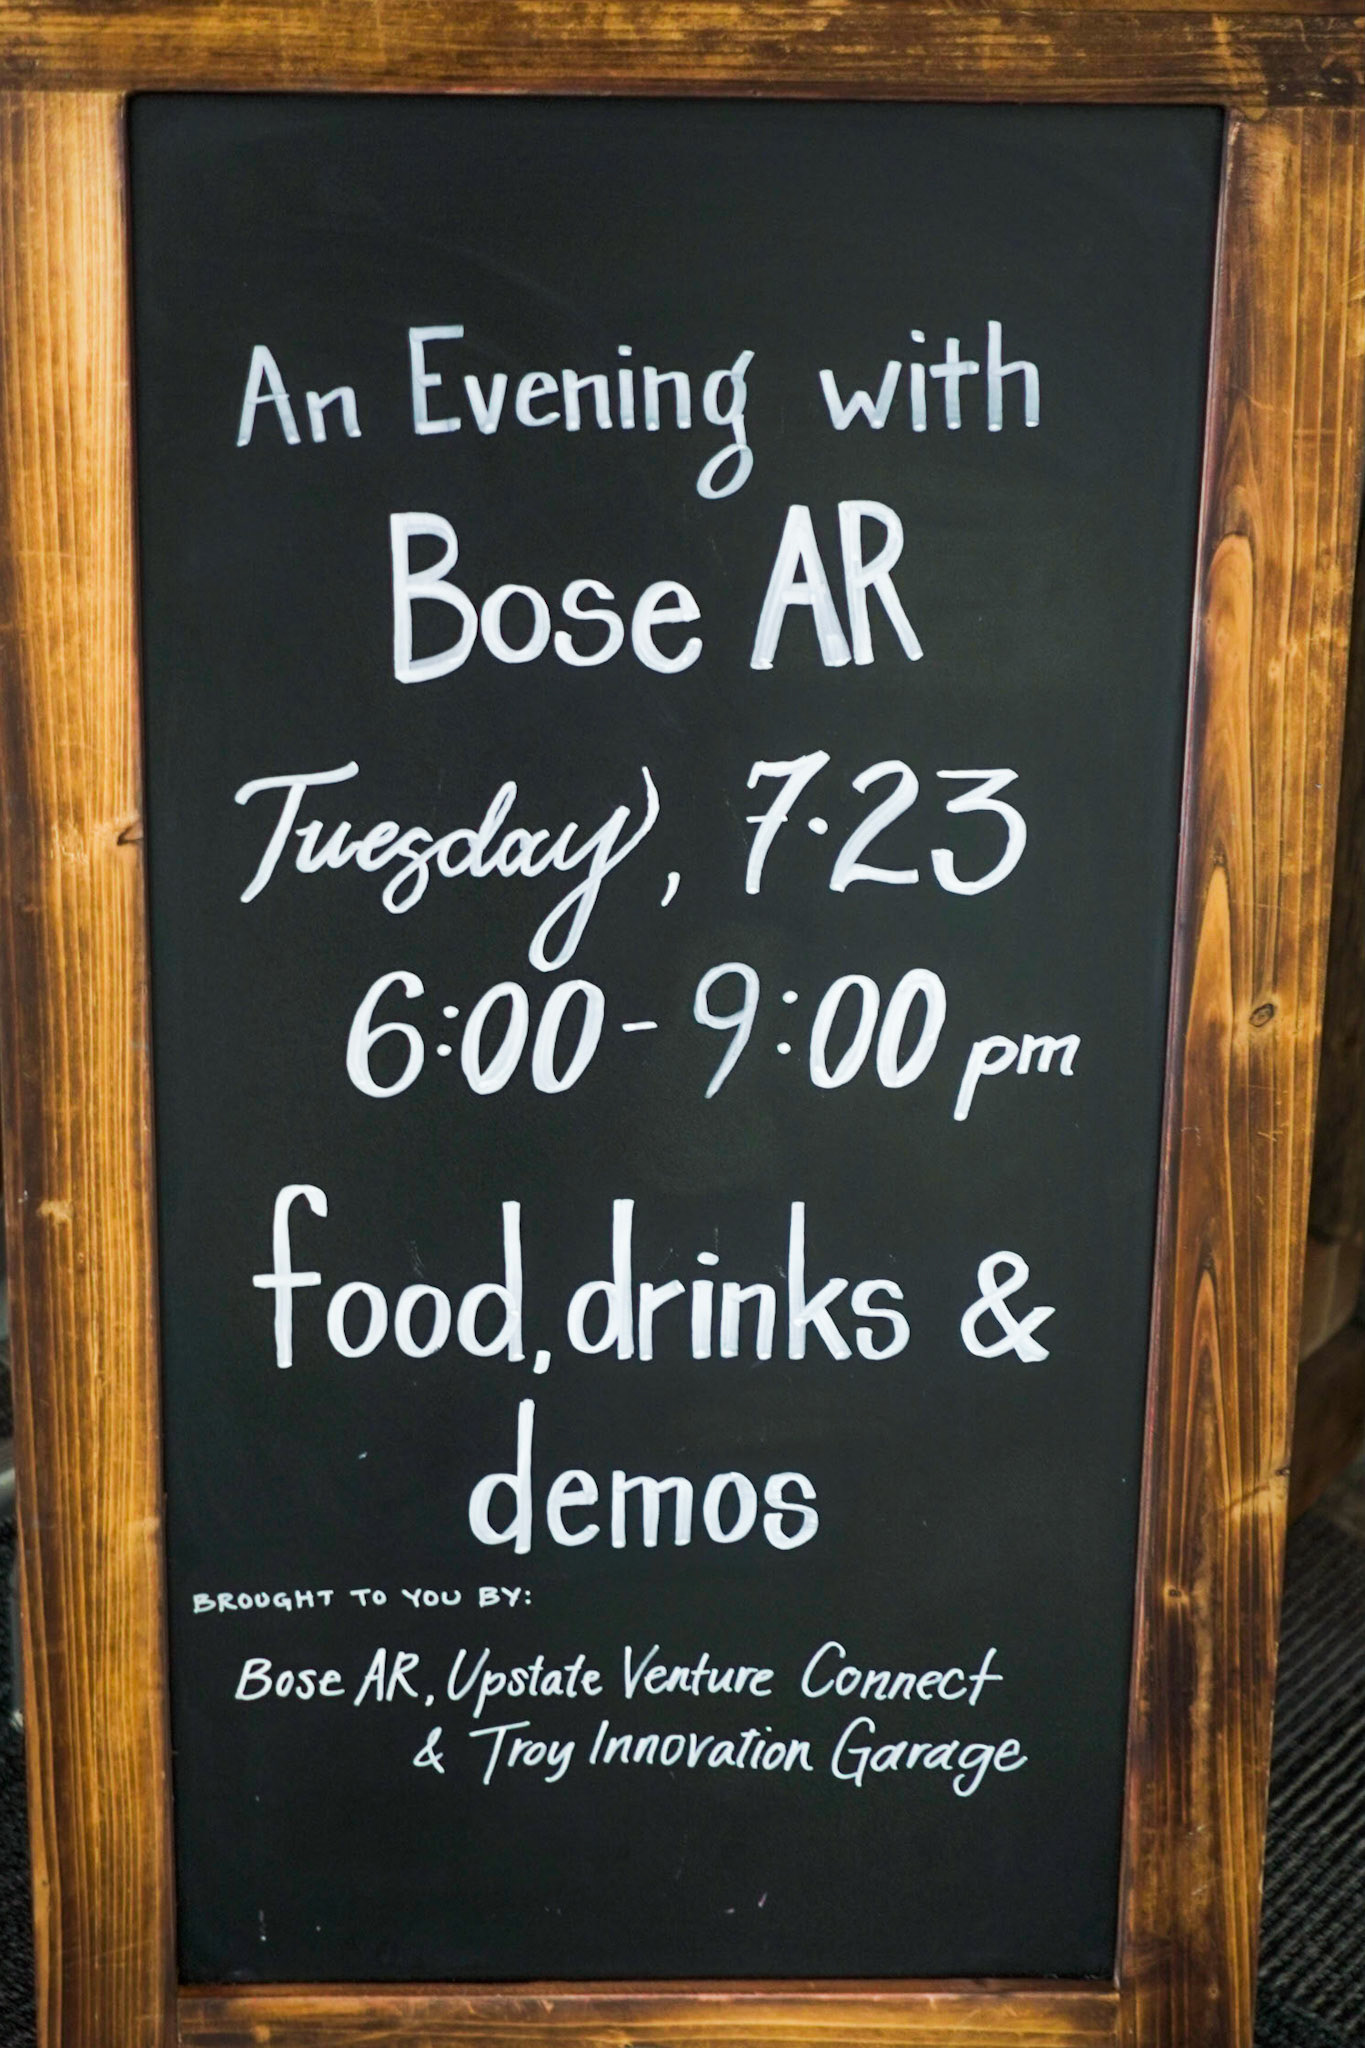 An Evening with
Bose AR
Tuesday, 7.23
6:00 - 9:00 pm
food, drinks &
demos
BROUGHT TO YOU BY:
Bose AR, Upstate Venture Connect
& Troy Innovation Garage